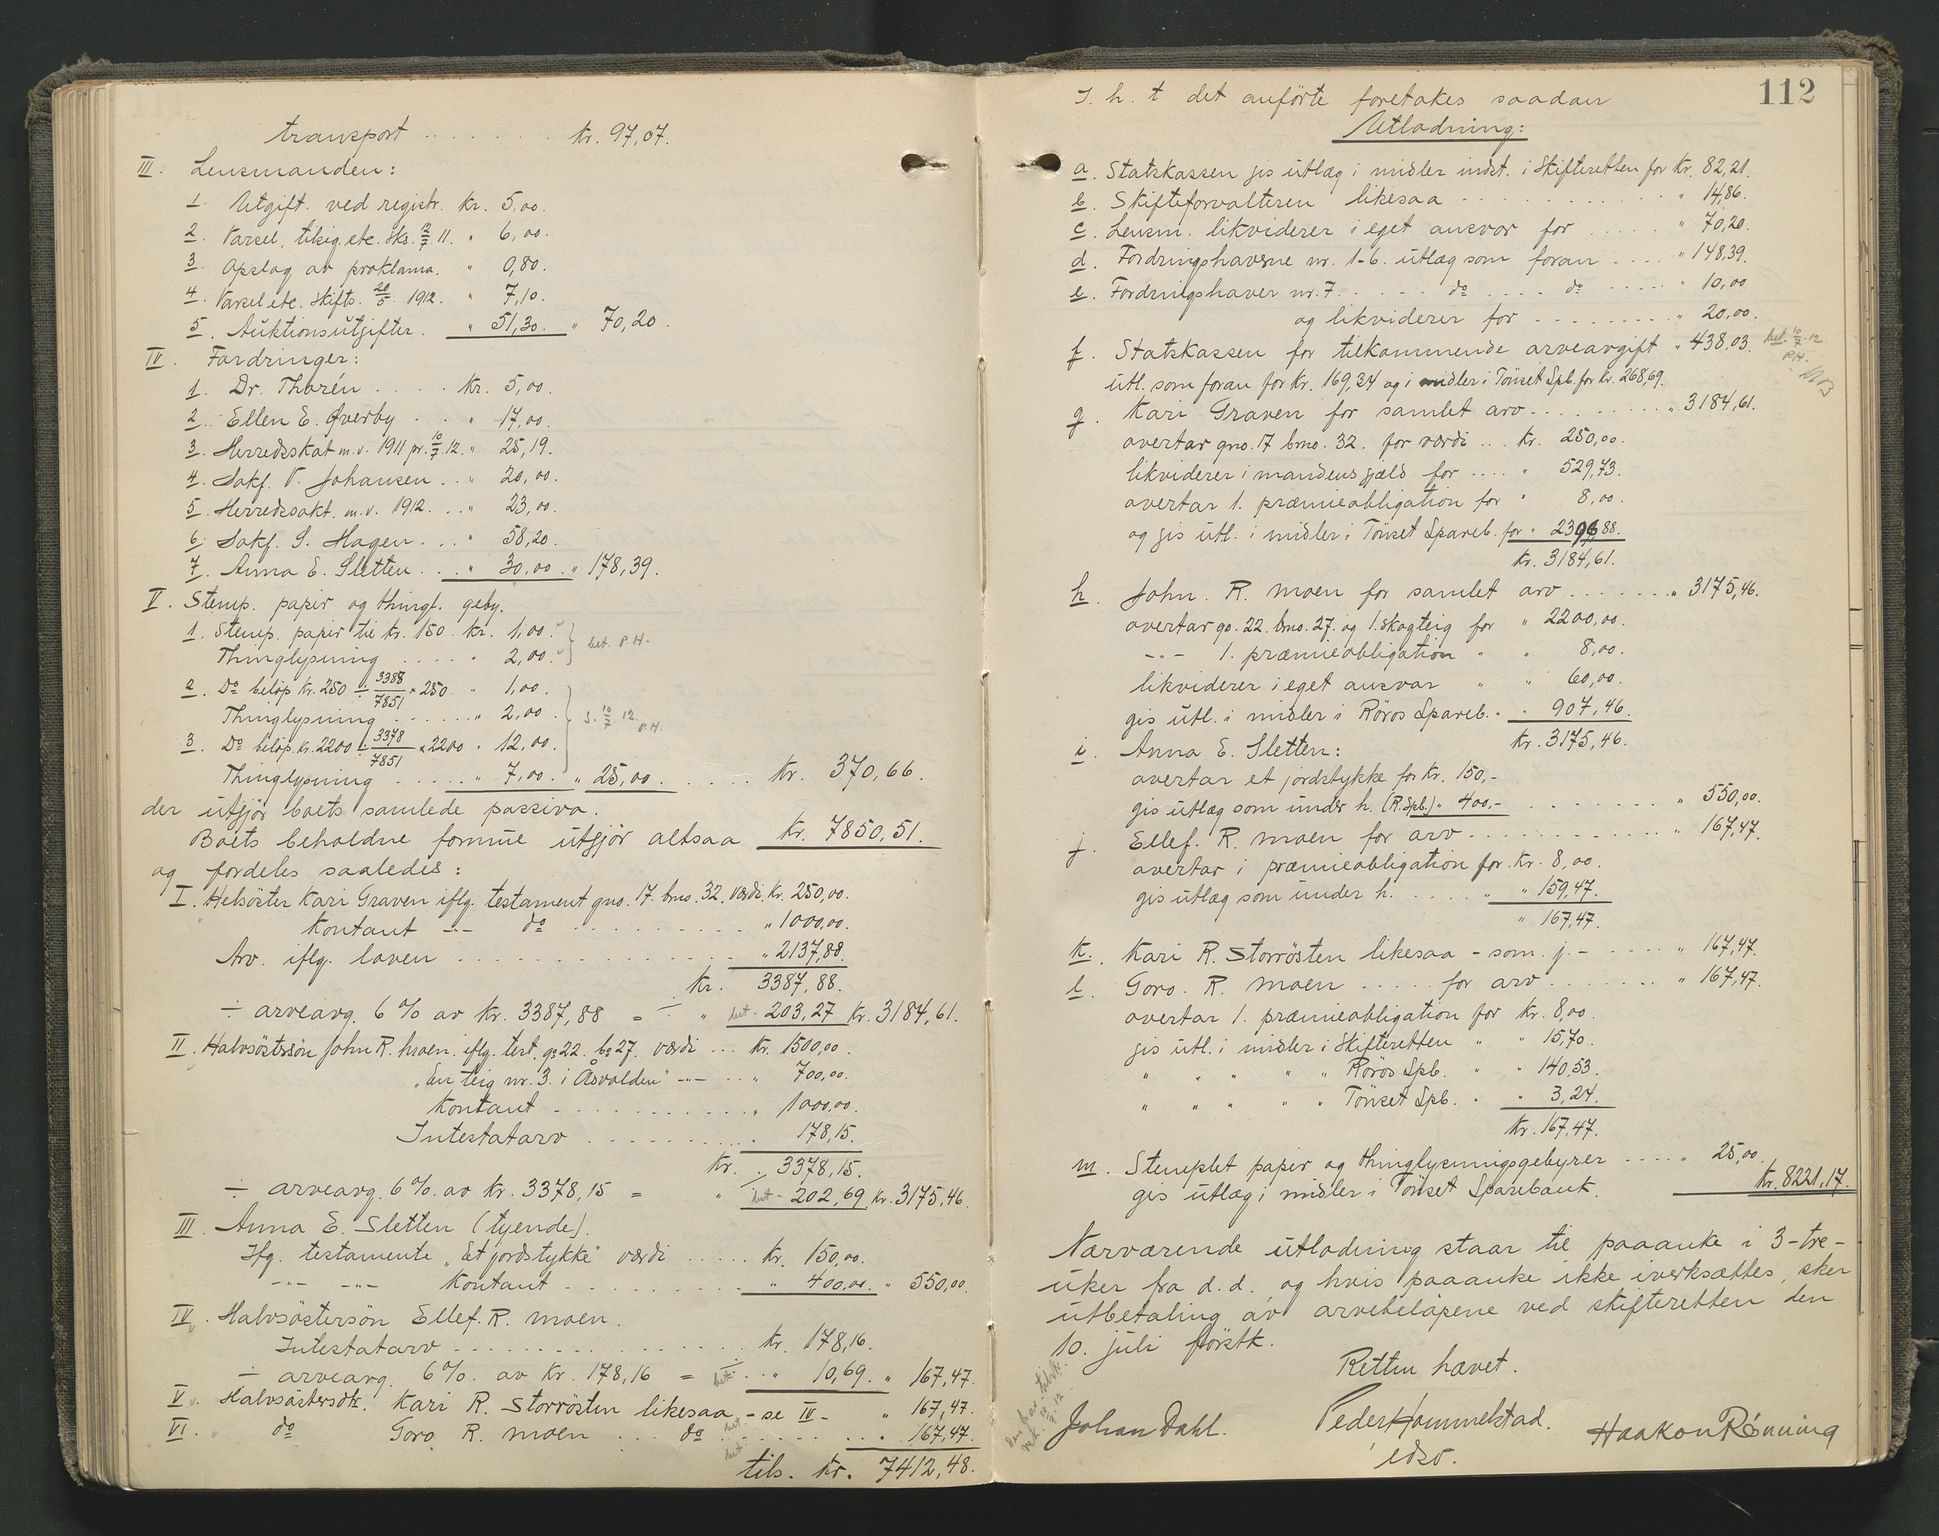 transport . . . . . . . kr. 97,07.
III. Lensmanden:
1. Utgift. ved registr. kr. 5,00.
2. Varsel, tilsig. etc. sks. 2/7 11. " 6,00.
3. Opslag av proklama. " 0,80.
4. Varsel etc. skifts. 20/5 1912. " 7,10.
5. Auktionsutgifter. " 51,30. " 70,20.
IV. Fordringer:
1. Dr. Thorén . . . . kr. 5,00.
2. Ellen E. Øverby . . " 17,00.
3. Herredsskat m.v. 1911 pr. 10/7 12. " 25,19.
4. Sakf. V. Johansen . . " 20,00.
5. Herredsskt. m.v. 1912. . . " 23,00.
6. Sakf. S. Hagen . . . " 58,20.
7. Anna E. Sletten . . . " 30,00. " 178,39.
V. Stemp. papir og thingl. geby.
1. Stemp. papir til kr. 150. kr. 1,00.
Thinglysning . . . . . " 2,00. bet. P.H.
2. Do beløp kr. 250 ÷ 3388/7851 × 250 " 1,00.
Thinglysning . . . . . . " 2,00. S. 10/7 12. P.H.
3. Do beløp. kr. 2200 ÷ 3378/7851 × 2200 " 12,00.
Thinglysning . . . . . " 7,00. " 25,00. . . . . . kr. 370,66.
der utgjør boets samlede passiva.
Boets beholdne formue utgjør altsaa kr. 7850,51.
og fordeles saaledes:
I. Helsøster Kari Graven iflg. testament gno. 17. bno. 32. værdi. kr. 250,00.
Kontant -"- do . . . . . . . . . " 1000,00.
Arv. iflg. loven . . . . . . . . . . . . " 2137,88.
kr. 3387,88.
÷ arveavg. 6 % av kr. 3387,88 = ÷ " bet. 203,27 kr. 3184,61.
II. Halvsøstersøn John R. Moen. iflg. test. go 22. bo 27. værdi . . . kr. 1500,00.
"En teig nr. 3. i Åsvolden" -"- . . . " 700,00.
Kontant . . . . . . . . . . . " 1000,00.
Intestatarv . . . . . . . . . . 178,15.
kr. " 3378,15.
÷ arveavg. 6 %. av kr. 3378,15 = " bet. 202,69 kr. 3175,46.
III. Anna E. Sletten (tyende).
Ifg. testamente "Et jordstykke" værdi . . . . . kr. 150,00.
-"- -"- Kontant . . . . . . . . . " 400,00. " 550,00.
IV. Halvsøstersøn Ellef. R. Moen.
Intestatarv . . . . . . . . . . . . . . kr. 178,16.
÷ arveavg. 6 %. av kr. 178,16 = bet. . . " 10,69. " 167,47.
V. Halvsøstersdtr. Kari R. Storrøsten likesaa - se IV - " 167,47.
VI. do Goro R. Moen . . . do . . . . . . . . " 167,47.
tils. kr. 7412,48.
112
I. h. t det anførte foretakes saadan
Utlodning:
a. Statskassen gis utlæg i midler indst. i Skifteretten for kr. 82,21.
b. Skifteforvalteren likesaa . . . . . . . . . . . . . " 14,86.
c. Lensm. likviderer i eget ansvar for . . . . . " 70,20.
d. Fordringshaverne nr. 1-6. utlæg som foran . . . . " 148,39.
e. Fordringshaver nr. 7. . . . . . do . . . . do . . . . . " 10,00
og likviderer for . . . . . . . . " 20,00.
f. Statskassen for tilkommende arveavgift " 438.03. bet. 10/7 12 P.H.
utl. som foran for kr. 169,34 og i midler i Tönset Spb. for kr. 268,69.
g. Kari Graven for samlet arv . . . . . . . . . . " 3184,61.
overtar gno. 17 bno. 32. for værdi . . . kr. 250,00.
likviderer i mandens gjæld for . . . . " 529,73.
overtar 1. præmieobligation for " 8,00.
og gis utl. i midler i Tönset Spareb. for " 2396,88.
kr. 3184,61.
h. John. R. Moen for samlet arv . . . . . . . " 3175,46.
overtar go. 22. bno. 27. og 1. skogteig for " 2200,00.
-"- 1. præmieobligation " " 8,00.
likviderer i eget ansvar " " 60,00.
gis utl. i midler i Röros Spareb. " " 907,46.
kr. 3175,46.
i. Anna E. Sletten:
overtar et jordstykke for kr. 150,-
gis utlæg som under h. (R. Spb.) " 400,- . . . . . . . . . " 550,00.
j. Ellef. R. Moen for arv . . . . . . . . . . . . . " 167,47.
overtar 1 præmieobligation for. kr. 8,00.
gis utlæg som under h. . . . . . " " 159,47.
" 167,47.
k. Kari R. Storrösten likesaa - som. j. - . . . . . . " 167,47.
l. Goro. R. Moen . . . . . for arv . . . . . . . " 167,47.
overtar 1. præmieobligation for kr. 8,00.
gis utl. i midler i Skifteretten " " 15,70.
" " " " " Röros Spb. " " 140,53.
" " " " " Tönset Spb. " " 3,24.
kr. 167,47.
m. Stemplet papir og thinglysningsgebyrer . . . . . " 25,00.
gis utlæg i midler i Tönset Sparebank. kr. 8221,17.
Nærværende utlodning staar til paaanke i 3-tre-
uker fra d. d. og hvis paaanke ikke iverksættes, sker
utbetaling av arvebeløpene ved skifteretten den
10. juli førstk.
Retten hævet.
Johan Dahl. Peder Hommelstad. Haakon Rønning
edsv.